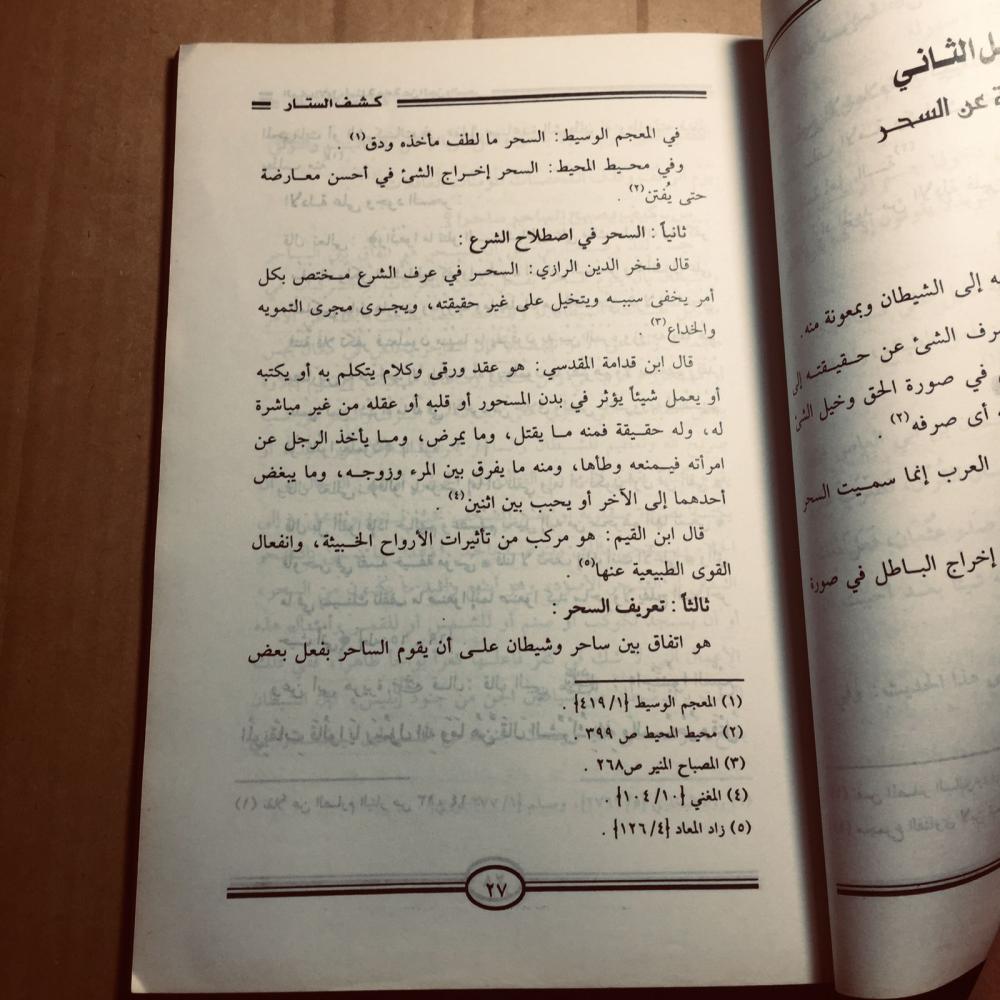 ل الثاني
ة عن السحر
ه إلى الشيطان وبمعونة منه.
رف الشئ عن حقيقته إلى
في صورة الحق وخيل الشئ
أى صرفه(٢) .
العرب إنما سميت السحر
إخراج الباطل في صورة
كشف الستار
في المعجم الوسيط: السحر ما لطف مأخذه ودق(١) .
وفي محيط المحيط: السحر إخراج الشئ في أحسن معارضة
حتى يُفتن(٢) .
ثانياً : السحر في اصطلاح الشرع :
قال فخر الدين الرازي: السحر في عرف الشرع مختص بكل
أمر يخفى سببه ويتخيل على غير حقيقته، ويجرى مجرى التمويه
والخداع(٣) .
قال ابن قدامة المقدسي: هو عقد ورقى وكلام يتكلم به أو يكتبه
أو يعمل شيئاً يؤثر في بدن المسحور أو قلبه أو عقله من غير مباشرة
له، وله حقيقة فمنه ما يقتل، وما يمرض، وما يأخذ الرجل عن
امرأته فيمنعه وطأها، ومنه ما يفرق بين المرء وزوجه، وما يبغض
أحدهما إلى الآخر أو يحبب بين اثنين(٤) .
قال ابن القيم: هو مركب من تأثيرات الأرواح الخبيثة، وانفعال
القوى الطبيعية عنها(٥) .
ثالثاً : تعريف السحر :
هو اتفاق بين ساحر وشيطان على أن يقوم الساحر بفعل بعض
(١) المعجم الوسيط {٤١٩/١} .
(٢) محيط المحيط ص ٣٩٩ .
(٣) المصباح المنير ص٢٦٨ .
(٤) المغني {١٠٤/١٠} .
(٥) زاد المعاد {١٢٦/٤} .
٢٧